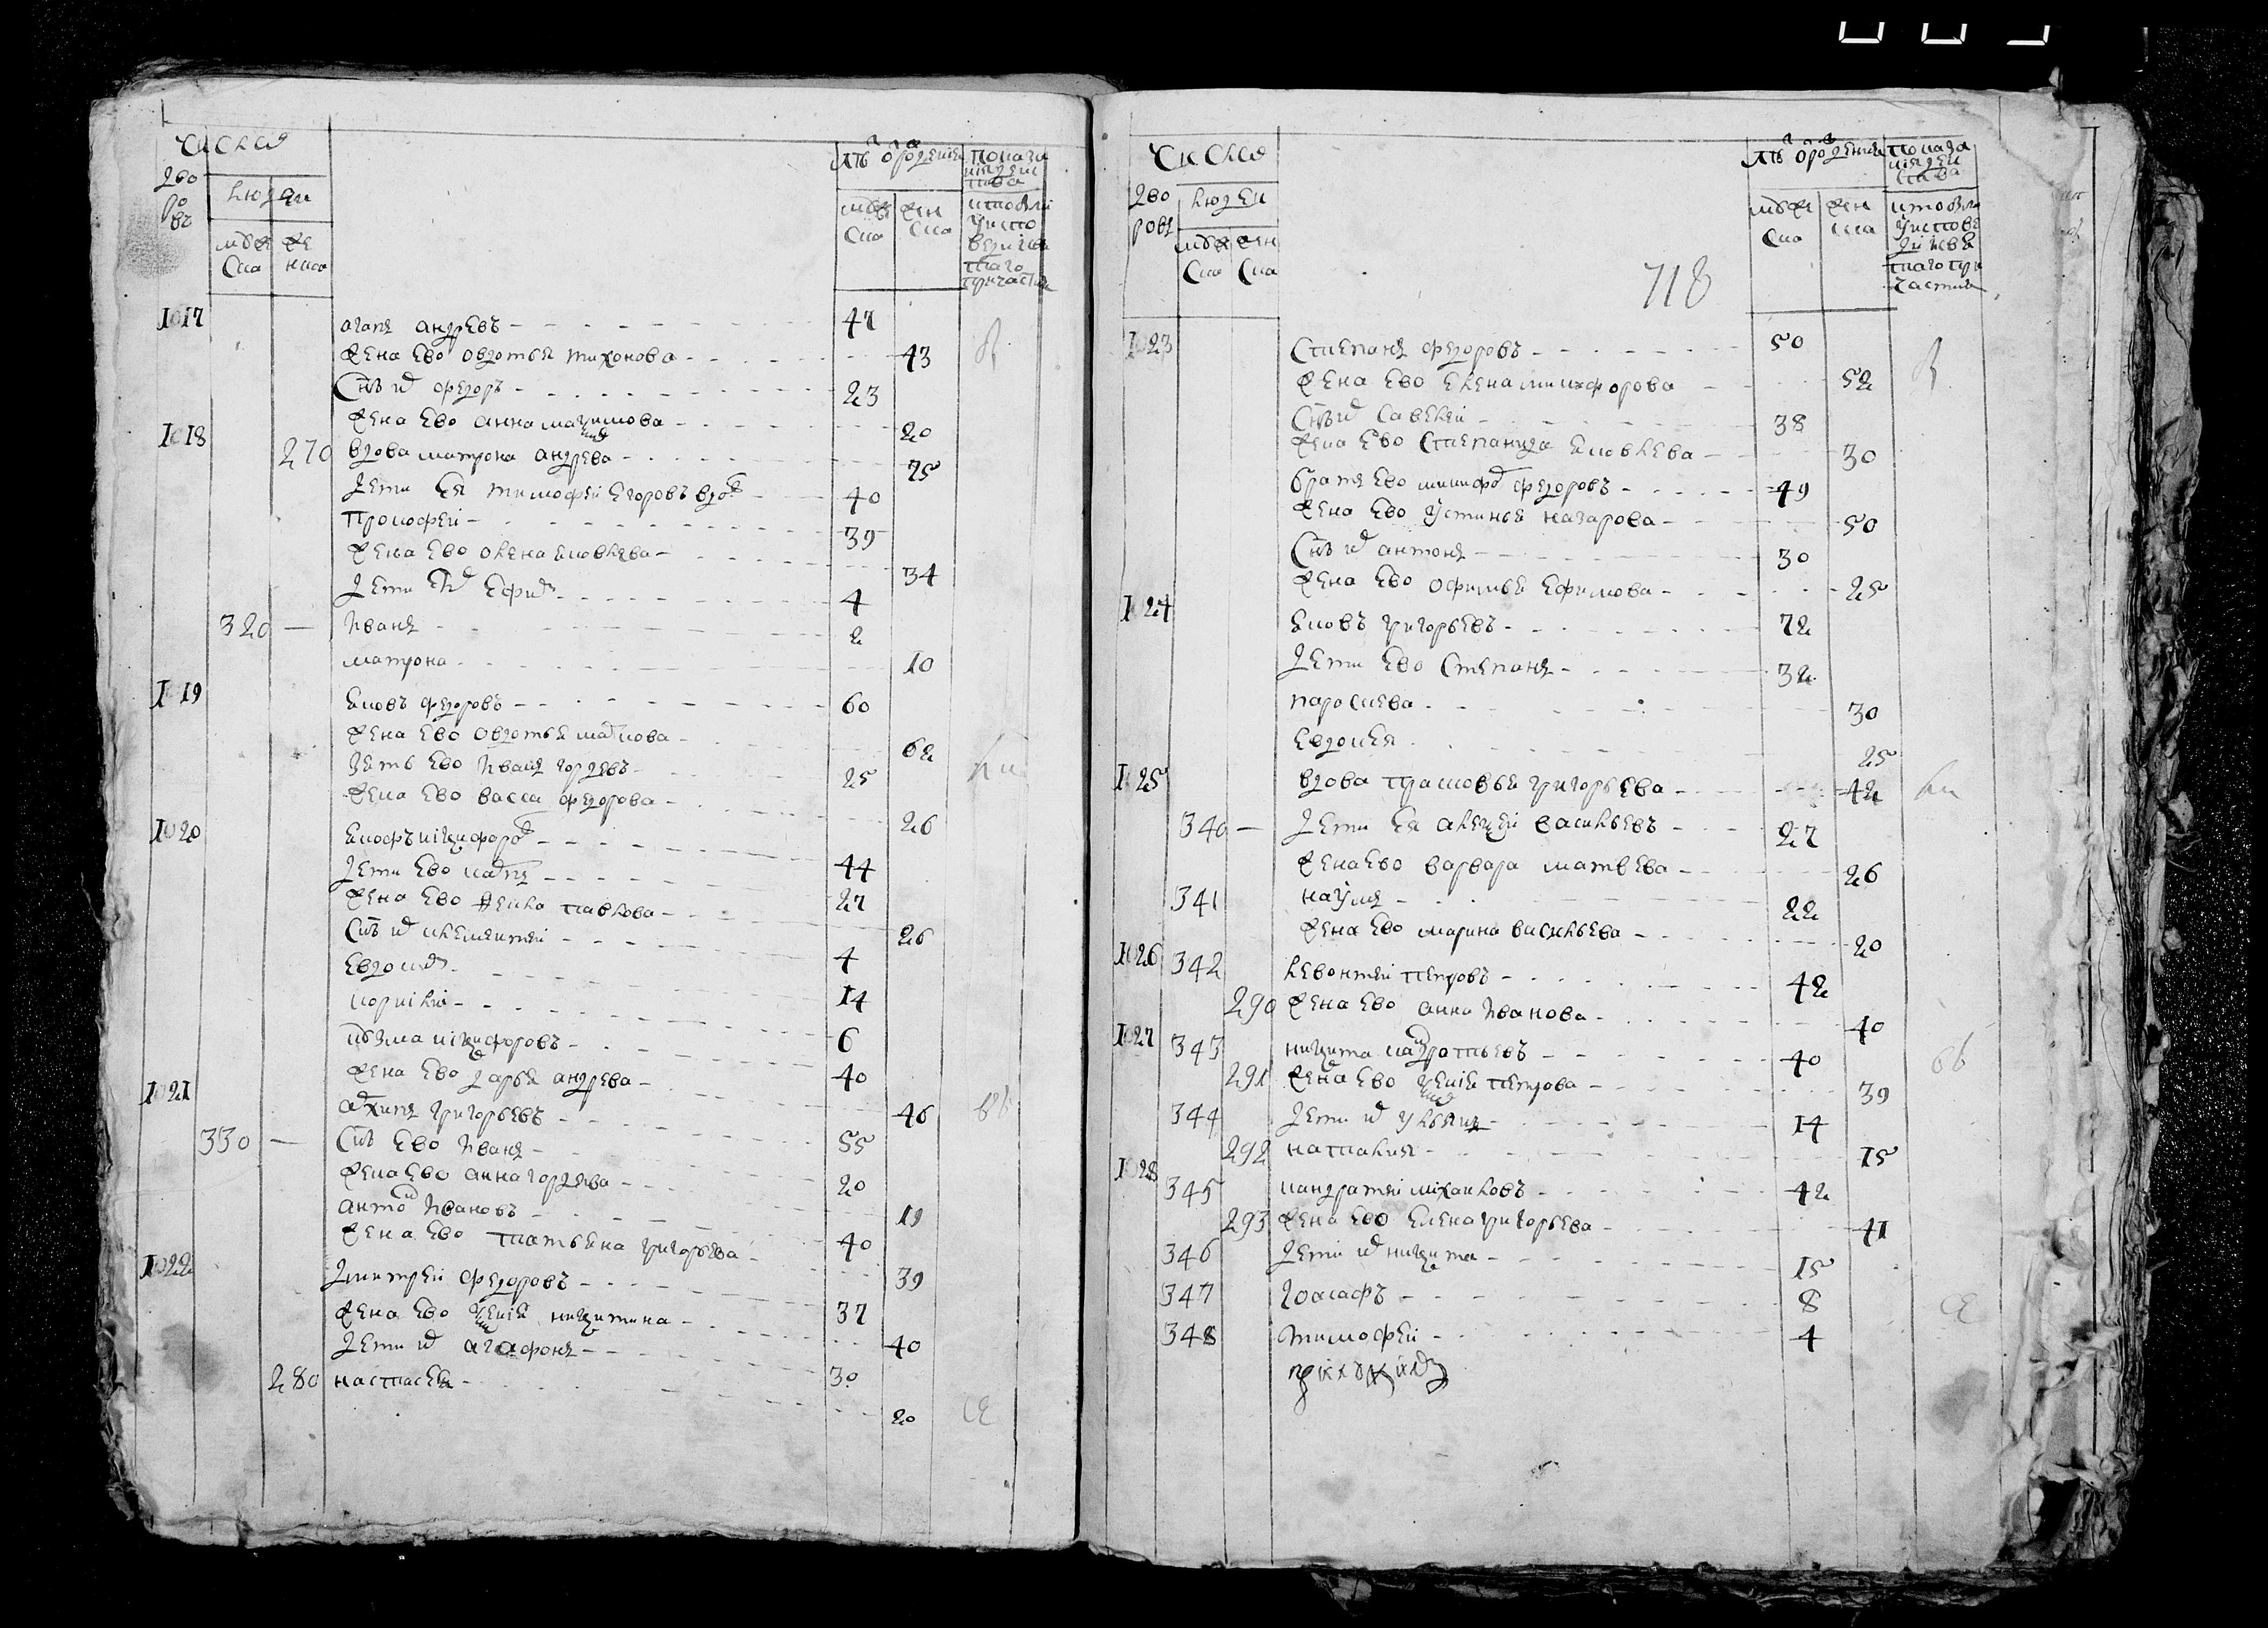 Числа
дво
ро
въ
людеи
муже
ска
же
нска
лѣта от рождения
муже
ска
жен
ска
показа
ние деи
ства
кто был
у испо
веди и свя
таго
причастия
1017
агапъ андревъ 47
жена ево овдотья тихонова 43
снъ их федоръ 23
жена ево анна макимова 20
1018
270 вдова матрона андрева 75
дети ея тимофеи егоровъ вдов 40
прокофеи 39
жена ево олена яковлева 34
дети их ефим 4
320 — иванъ 2
матрона 10
1019
яковъ федоровъ 60
жена ево овдотья маркова 62
зять ево иванъ гордѣевъ 25
жена ево васса федорова 26
1020
якофъ никифоров 44
дети ево карпъ 27
жена ево фекла павлова 26
снъ их клементеи 4
евдоким 14
корнили 6
кузма никифоровъ 40
жена ево дарья андрева 46
1021
архипъ григорьевъ 55
330 — снъ ево иванъ 20
жена ево анна гордѣева 19
антон ивановъ 40
жена ево татьяна григорьева 39
1022
дмитреи федоровъ 37
жена ево ксения никитина 40
дети их агафонъ 30
280 настасья 20
Числа
дво
ровъ
людеи
муже
ска
жен
ска
718
лѣта от рождения
муже
ска
жен
ска
показа
ние деи
ства
кто был
у испове
ди и свя
таго при
частия
1023
степанъ федоровъ 50
жена ево елена никифорова 52
снъ их савелеи 38
жена ево степанида яковлева 30
братъ ево никифор федоровъ 49
жена ево устинья назарова 50
снъ их антонъ 30
жена ево офимья ефимова 25
1024
яковъ григорьевъ 72
дети ево степанъ 32
пароскева 30
евдокея 25
1025
вдова прасковья григорьева 42
340 — дети ея алексеи васильевъ 27
жена ево варвара матвева 26
341 наумъ 22
жена ево марина васильева 20
1026
342 левонтеи петровъ 42
290 жена ево анна иванова 40
1027
343 никита кандратьевъ 40
291 жена ево ксения петрова 39
344 дети их ульянъ 14
292 наталия 15
1028
345 кандратеи михаиловъ 42
293 жена ево елена григорьева 41
346 дети их никита 15
347 иоасафъ 8
348 тимофеи 4